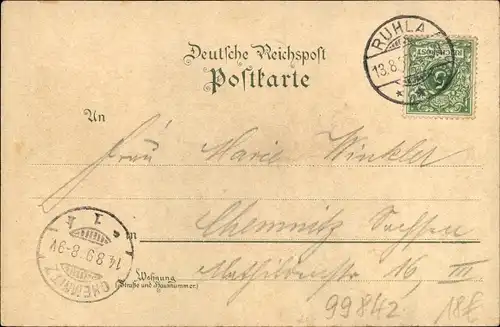 Deutsche Reichspost
Postkarte
RUHLA
13.8.9
REICHSPOST
5
An
Frau Marie Winkler
in
Chemnitz Sachsen
Wohnung
(Straße und Hausnummer)
Mathildenstr 16, III
CHEMNITZ
14.8.9 8-9V
99842
18€